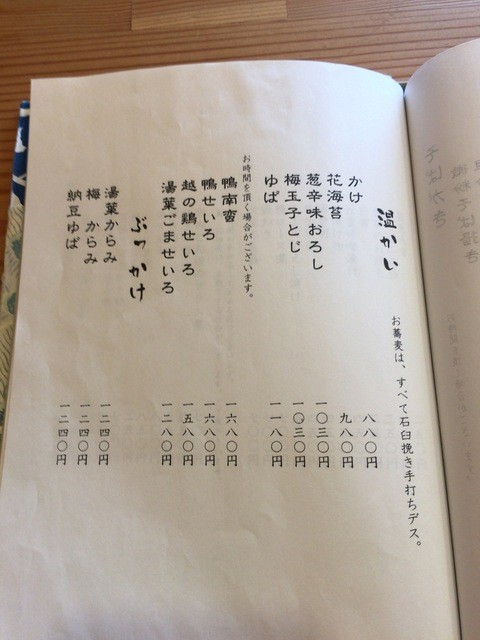 お蕎麦は、すべて石臼挽き手打ちデス。
温かい
かけ 八八〇円
花海苔 九八〇円
葱辛味おろし 一〇三〇円
梅玉子とじ 一〇三〇円
ゆば 一一八〇円
お時間を頂く場合がございます。
鴨南蛮 一六八〇円
鴨せいろ 一六八〇円
越の鶏せいろ 一五八〇円
湯葉ごませいろ 一二八〇円
ぶっかけ
湯葉からみ 一二四〇円
梅 からみ 一二四〇円
納豆ゆば 一二四〇円